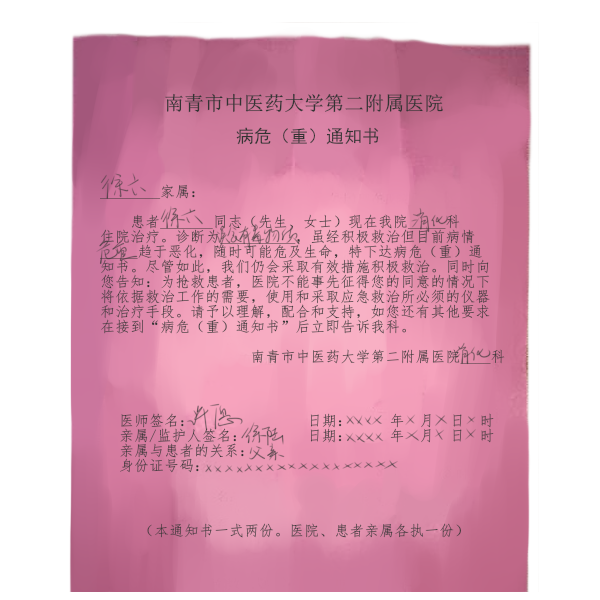 南青市中医药大学第二附属医院
病危（重）通知书
徐六 家属：
患者 徐六 同志（先生，女士）现在我院 消化科
住院治疗。诊断为，虽经积极救治但目前病情
危重 趋于恶化，随时可能危及生命，特下达病危（重）通
知书。尽管如此，我们仍会采取有效措施积极救治。同时向
您告知：为抢救患者，医院不能事先征得您的同意的情况下
将依据救治工作的需要，使用和采取应急救治所必须的仪器
和治疗手段。请予以理解，配合和支持，如您还有其他要求
在接到“病危（重）通知书”后立即告诉我科。
南青市中医药大学第二附属医院 消化 科
医师签名： 日期：×××× 年×月×日×时
亲属/监护人签名：徐陆 日期：×××× 年×月×日×时
亲属与患者的关系：父亲
身份证号码：××××××××××××××××××
（本通知书一式两份。医院、患者亲属各执一份）